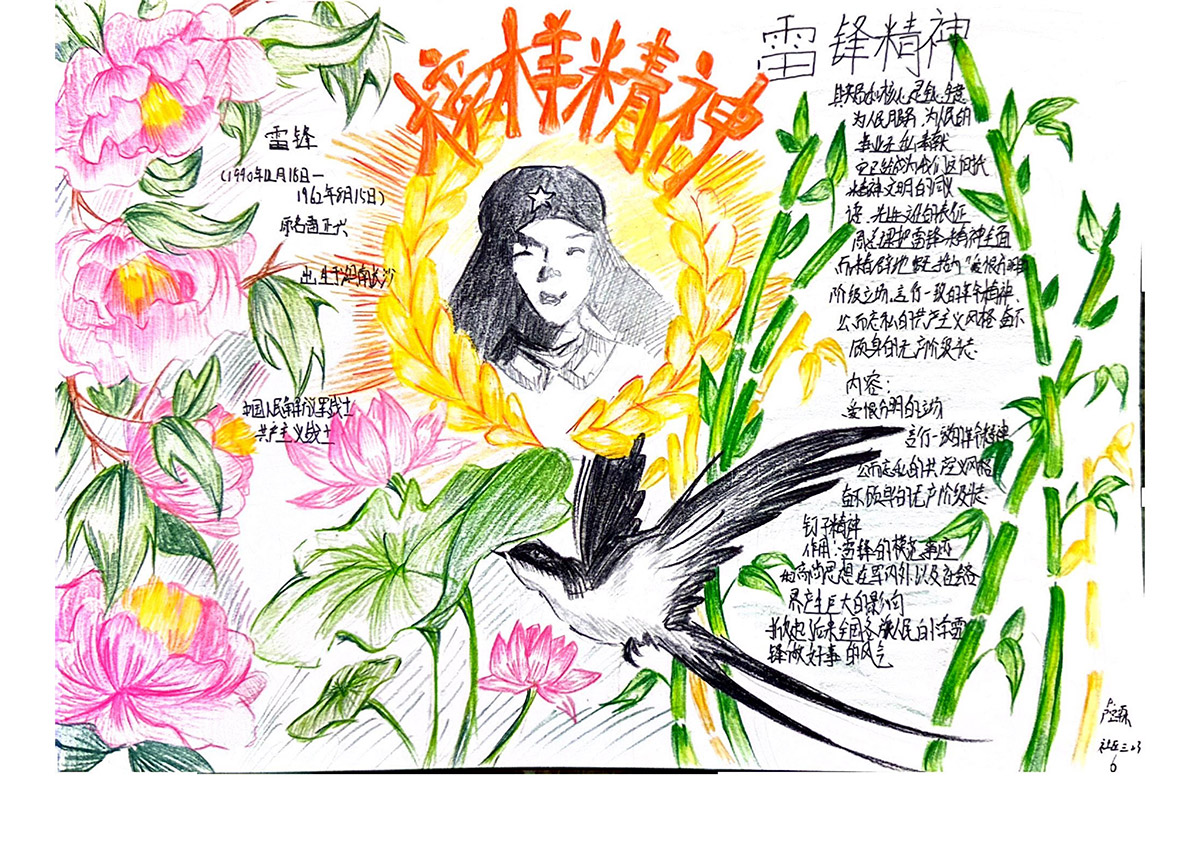 榜样精神
雷锋
(1990年12月18日—
1962年8月15日)
原名雷正兴
出生于湖南长沙
中国人民解放军战士
共产主义战士
雷锋精神
其实质和核心是全心全意
为人民服务,为人民的
事业无私奉献
它已经成为我们这个时代
精神文明的同义
语、先进文化的表征
周总理把雷锋精神全面
而精辟地概括为"爱恨分明的
阶级立场、言行一致的革命精神、
公而忘私的共产主义风格、奋不
顾身的无产阶级斗志
内容:
爱恨分明的立场
言行一致的革命精神
公而忘私的共产主义风格
奋不顾身的无产阶级斗志
钉子精神
作用:雷锋的模范事迹
的高尚思想在军内外以及在全
界产生巨大的影响
全国各族人民的学雷
锋做好事的风气
社区三
6